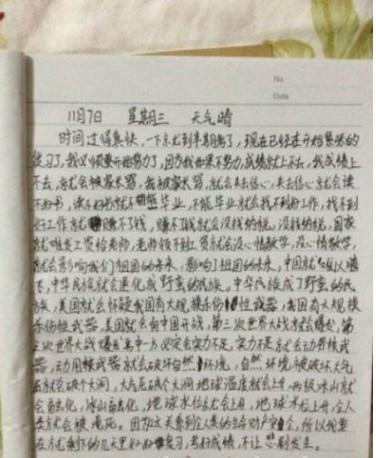 No.
Date
11月7日 星期三 天气晴
时间过得真快，一下就到半期考了，现在已经在开始紧张的
复习了，我必须要开始努力了，因为我如果不努力，成绩就上不去，我成绩上
不去，就会被家长骂，我被家长骂，就会失去信心，失去信心就会读
不好书，读不好书就不能毕业，不能毕业就会找不到好工作，找不到
好工作就赚不了钱，赚不了钱就会没钱纳税，没钱纳税，国家
就难发工资给老师，老师领不到工资就会没心情教学，没心情教学，
就会影响我们祖国的未来，影响了祖国的未来，中国就难以腾
飞，中华民族就会退化成野蛮的民族，中华民族成了野蛮的民
族，美国就会怀疑我国有大规模杀伤性武器，我国有大规模
杀伤性武器，美国就会向中国开战，第三次世界大战就会爆发，第
三次世界大战爆发其中一方必定会实力不足，实力不足就会动用核武
器，动用核武器就会破坏自然环境，自然环境被破坏大气
层就会破个大洞，大气层破个大洞地球温度就会上升，两极冰山就
会融化，冰山融化，地球水位就会上升，地球水位上升，全人
类就会被淹死。因为这关系到全人类的生命财产安全，所以我要
在就剩下的几天里好好复习，考好成绩，不让悲剧发生。